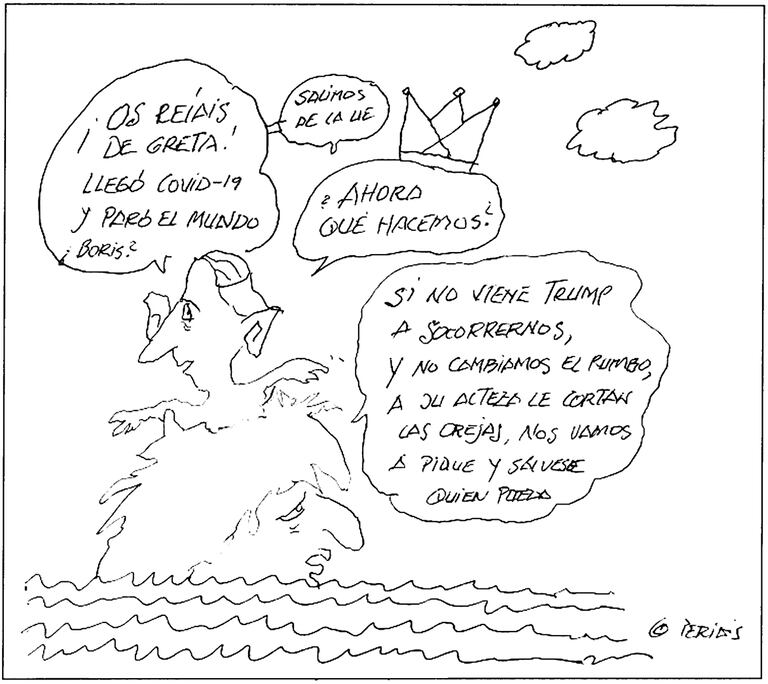 ¡OS REÍAIS
DE GRETA!
LLEGÓ COVID-19
Y PARÓ EL MUNDO
¿BORIS?
SALIMOS
DE LA UE
¿AHORA
QUÉ HACEMOS?
SI NO VIENE TRUMP
A SOCORRERNOS,
Y NO CAMBIAMOS EL RUMBO,
A SU ALTEZA LE CORTAN
LAS OREJAS, NOS VAMOS
A PIQUE Y SÁLVESE
QUIEN PUEDA
© PERIDIS